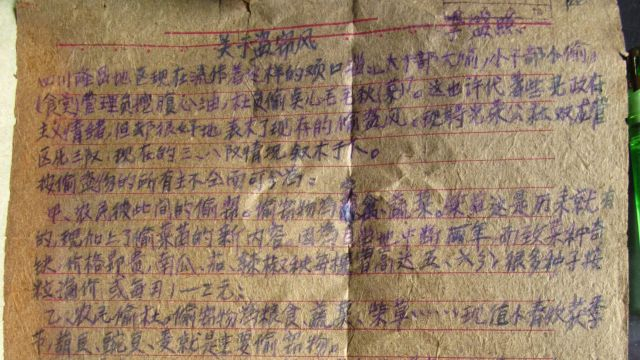 关于盗窃风
李盛照
四川灾民地区现在流传着这样的顺口溜:"大干部大偷,小干部小偷,
(食堂)管理员 腹心油,社员偷 毛毛秋(菜)"。这也许代 着些 政府
主义情绪,但却很好地表木了现存的偷盗风。现将光荣公社双
区 三队,现在的三、八队情况叙木于下。
按偷窃物的所有主不全面可分为:
甲、农民彼此间的偷窃。偷窃物为 禽、蔬菜、柴草这是历来就有
的,现加上了偷菜苗的新内容,因为 地中断两年,而致菜种奇
缺,价格昂贵,南瓜、茄、辣椒秧每棵曾高达五、六分,很多种子按
粒论价或每月1—2元;
乙、农民偷社。偷窃物为粮食、蔬菜、柴草……现值小春收获季
节,葫豆、豌豆、麦就是主要偷窃物。